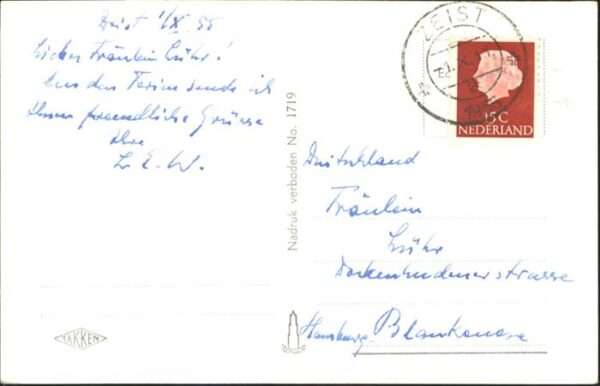 Zeist 1/IX 58
Liebes Fräulein Lühr!
Aus den Ferien sende ich
Ihnen freundliche Grüsse
Ihre
L. E. W.
Nadruk verboden No. 1719
ZEIST
15C
NEDERLAND
Deutschland
Fräulein
Lühr
Dockenhudenerstrasse
Hamburg-Blankenese
TAKKEN